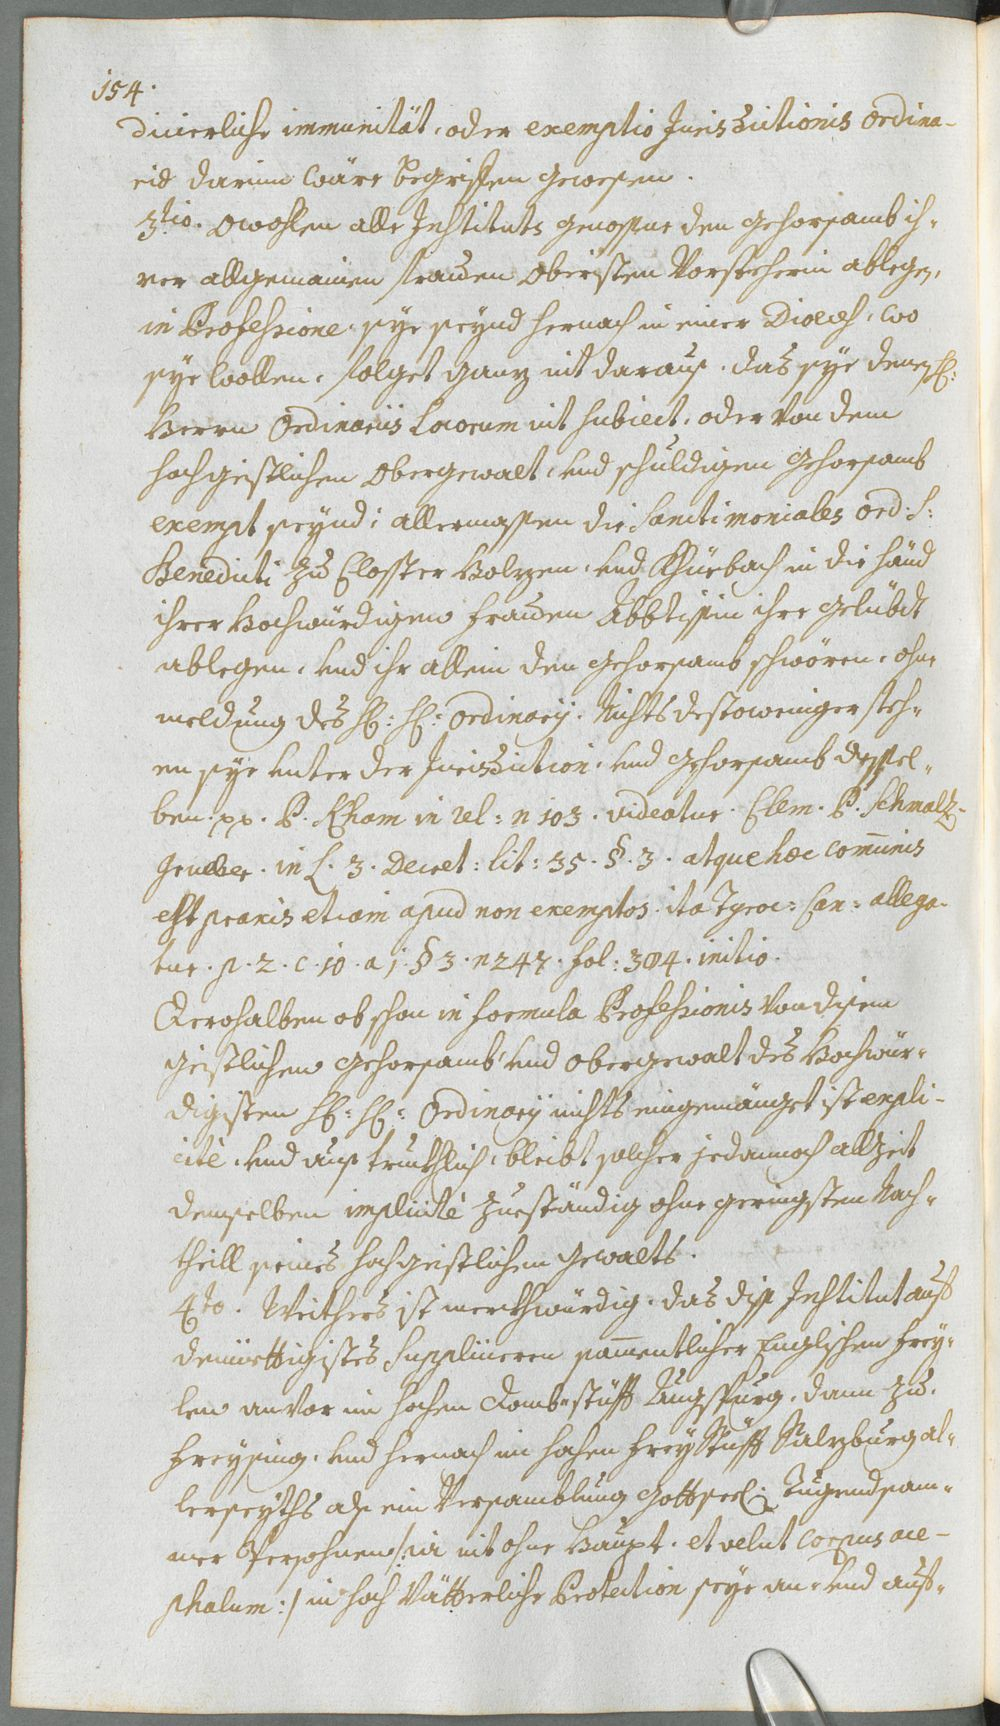 154.
dicierliche immunität, oder exemptio Jurisdictionis Ordina-
rie darinn wäre begriffen gewesen.
3tio. Owohlen alle Instituts genossne den gehorsamb ih-
rer allgemainen frauen Oberisten Vorsteherin ablegen,
in Professione, sye seynd hernach in einer Dioeces, wo
sye wollen, folget ganz nit darauß, das sye denen H:
Herrn Ordinariis Locorum nit subiect, oder von dem
hochgeistlichen Obergewalt, und schuldigen gehorsamb
exempt seynd; allermassen die Sanctimoniales Ord: S:
Benedicti zu Closter Holzen, und Khüebach in die händ
ihrer Hochwürdigen frauen Äbbtissin ihre gelübdt
ablegen, und ihr allein den gehorsamb schwören, ohne
meldung des H: H: Ordinarij. Nichts destoweniger steh-
en sye unter der Jurisdiction, und gehorsamb dessel-
ben. pp. P. Kham in rel: n 103. videatur. Clem. P. Schmalz-
grueber. in L. 3. Decret: tit: 35. §. 3. atque hæc com̄unis
est praxis etiam apud non exemptos. ita Tyroc: Can: allega-
tur. p. 2. c. 10. a j. § 3. n 247. fol: 304. initio.
Derohalben ob schon in formula Professionis von disem
geistlichen gehorsamb und obergewalt des Hochwür-
digisten H: H: Ordinarij nichts eingemänget ist expli-
citè, und austrukhlich, bleibt solcher jedannoch allzeit
demselben implicitè zueständig ohne geringsten Nach-
theill seines hochgeistlichen gewalts.
4to. Weithers ist merkhwürdig, das diß Institut auf
demüettigistes Suppliciren sam̄entlicher Englischen frey-
len anvor im hohen Domb-stüfft Augspurg, dann zu
freysing, und hernach im hohen Erzstüfft Salzburg al-
lerseyths alß ein Versamblung Gottseel: Tugendsam-
mer Persohnen /: ia nit ohne Haupt, et velut corpus ace-
phalum :/ in hoch Vätterliche Protection seye an- und auf-